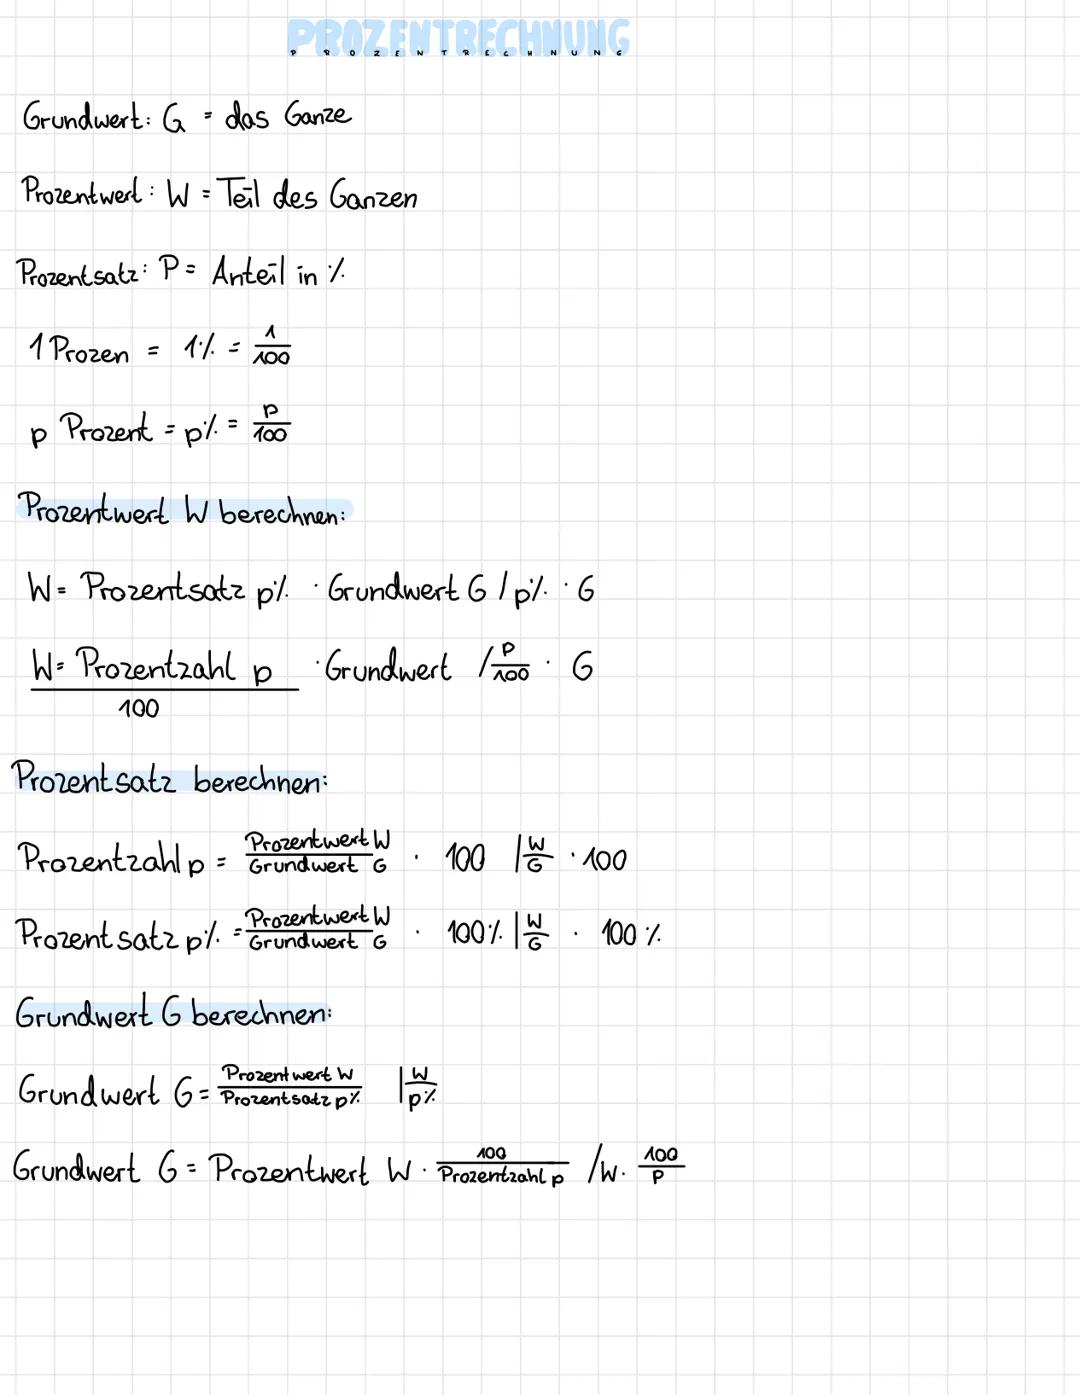 PROZENTRECHNUNG
PROZENTRECHNUNG
Grundwert: G = das Ganze
Prozentwert: W = Teil des Ganzen
Prozentsatz: P = Anteil in %
1 Prozen = 1% = 1/100
p Prozent = p% = p/100
Prozentwert W berechnen:
W = Prozentsatz p% · Grundwert G / p% · G
W = Prozentzahl p / 100 · Grundwert / p/100 · G
Prozentsatz berechnen:
Prozentzahl p = Prozentwert W / Grundwert G · 100 | W/G · 100
Prozentsatz p% = Prozentwert W / Grundwert G · 100% | W/G · 100%
Grundwert G berechnen:
Grundwert G = Prozentwert W / Prozentsatz p% | W/p%
Grundwert G = Prozentwert W · 100 / Prozentzahl p / W · 100/p